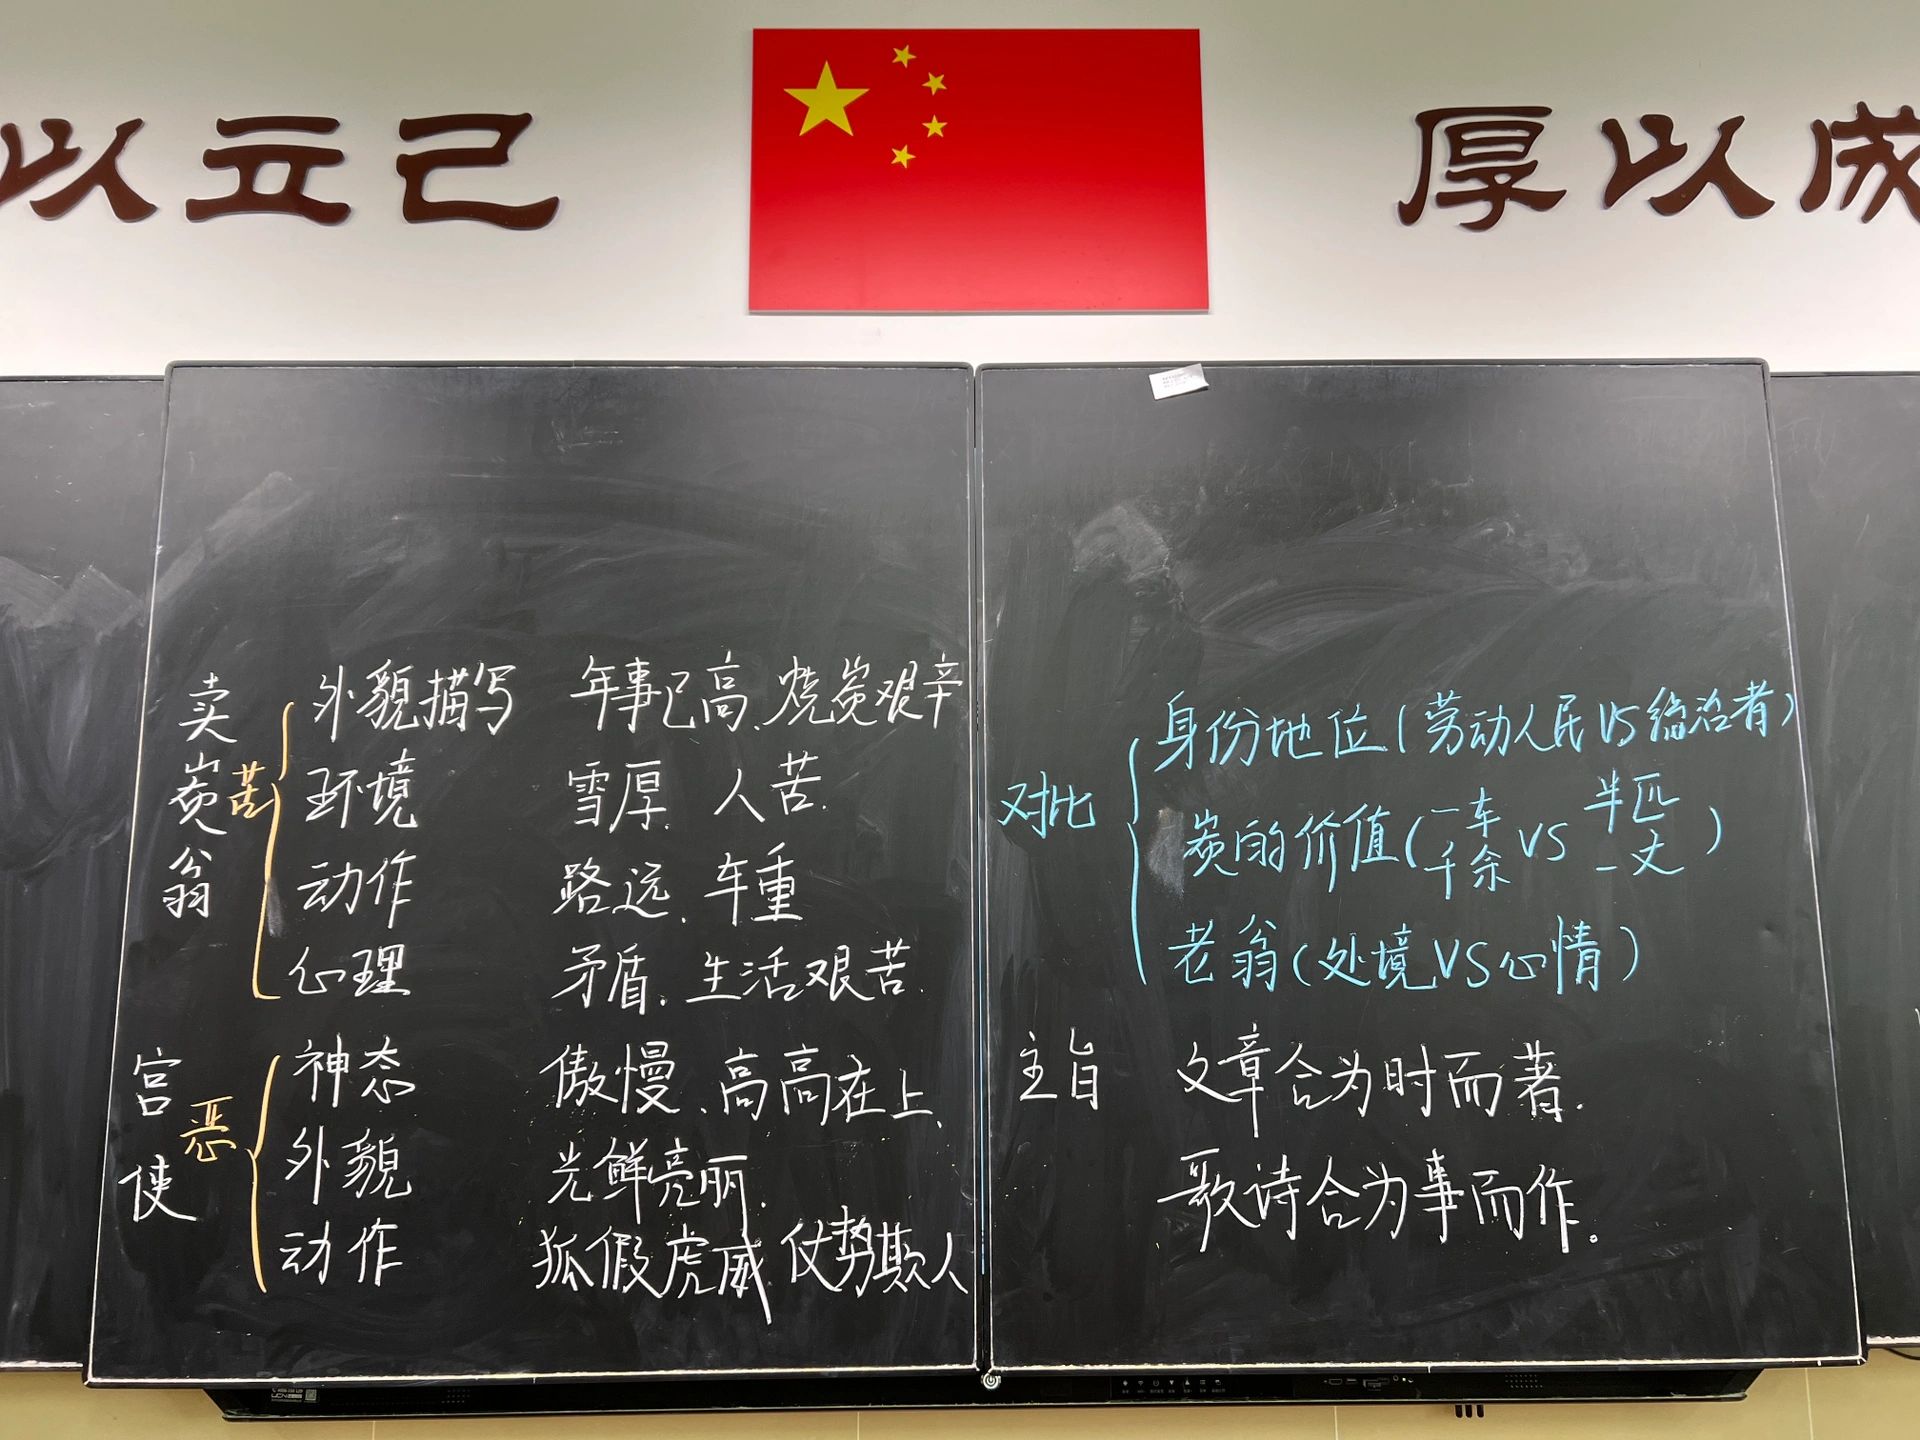 以立己
厚以成
卖炭翁
苦
外貌描写 年事已高、烧炭艰辛
环境 雪厚、人苦.
动作 路远、车重
心理 矛盾、生活艰苦.
宫使
恶
神态 傲慢、高高在上、
外貌 光鲜亮丽、
动作 狐假虎威、仗势欺人
对比
身份地位(劳动人民VS统治者)
炭的价值(一车千余 VS 半匹一丈)
老翁(处境VS心情)
主旨 文章合为时而著.
歌诗合为事而作。